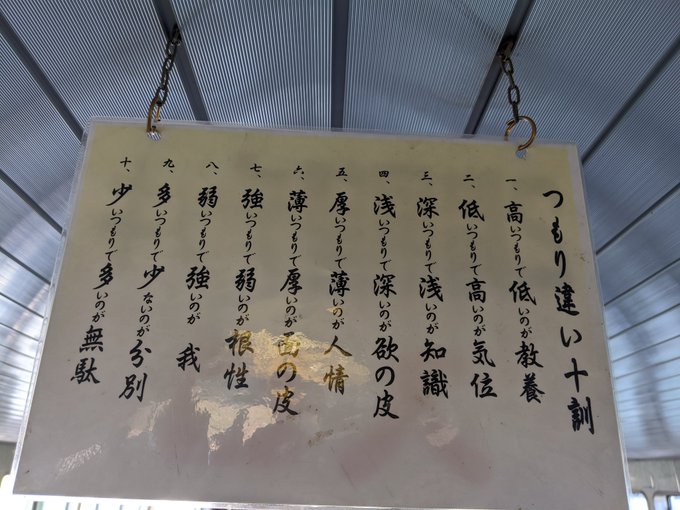 つもり違い十訓
一、高いつもりで低いのが教養
二、低いつもりで高いのが気位
三、深いつもりで浅いのが知識
四、浅いつもりで深いのが欲の皮
五、厚いつもりで薄いのが人情
六、薄いつもりで厚いのが面の皮
七、強いつもりで弱いのが根性
八、弱いつもりで強いのが我
九、多いつもりで少ないのが分別
十、少いつもりで多いのが無駄